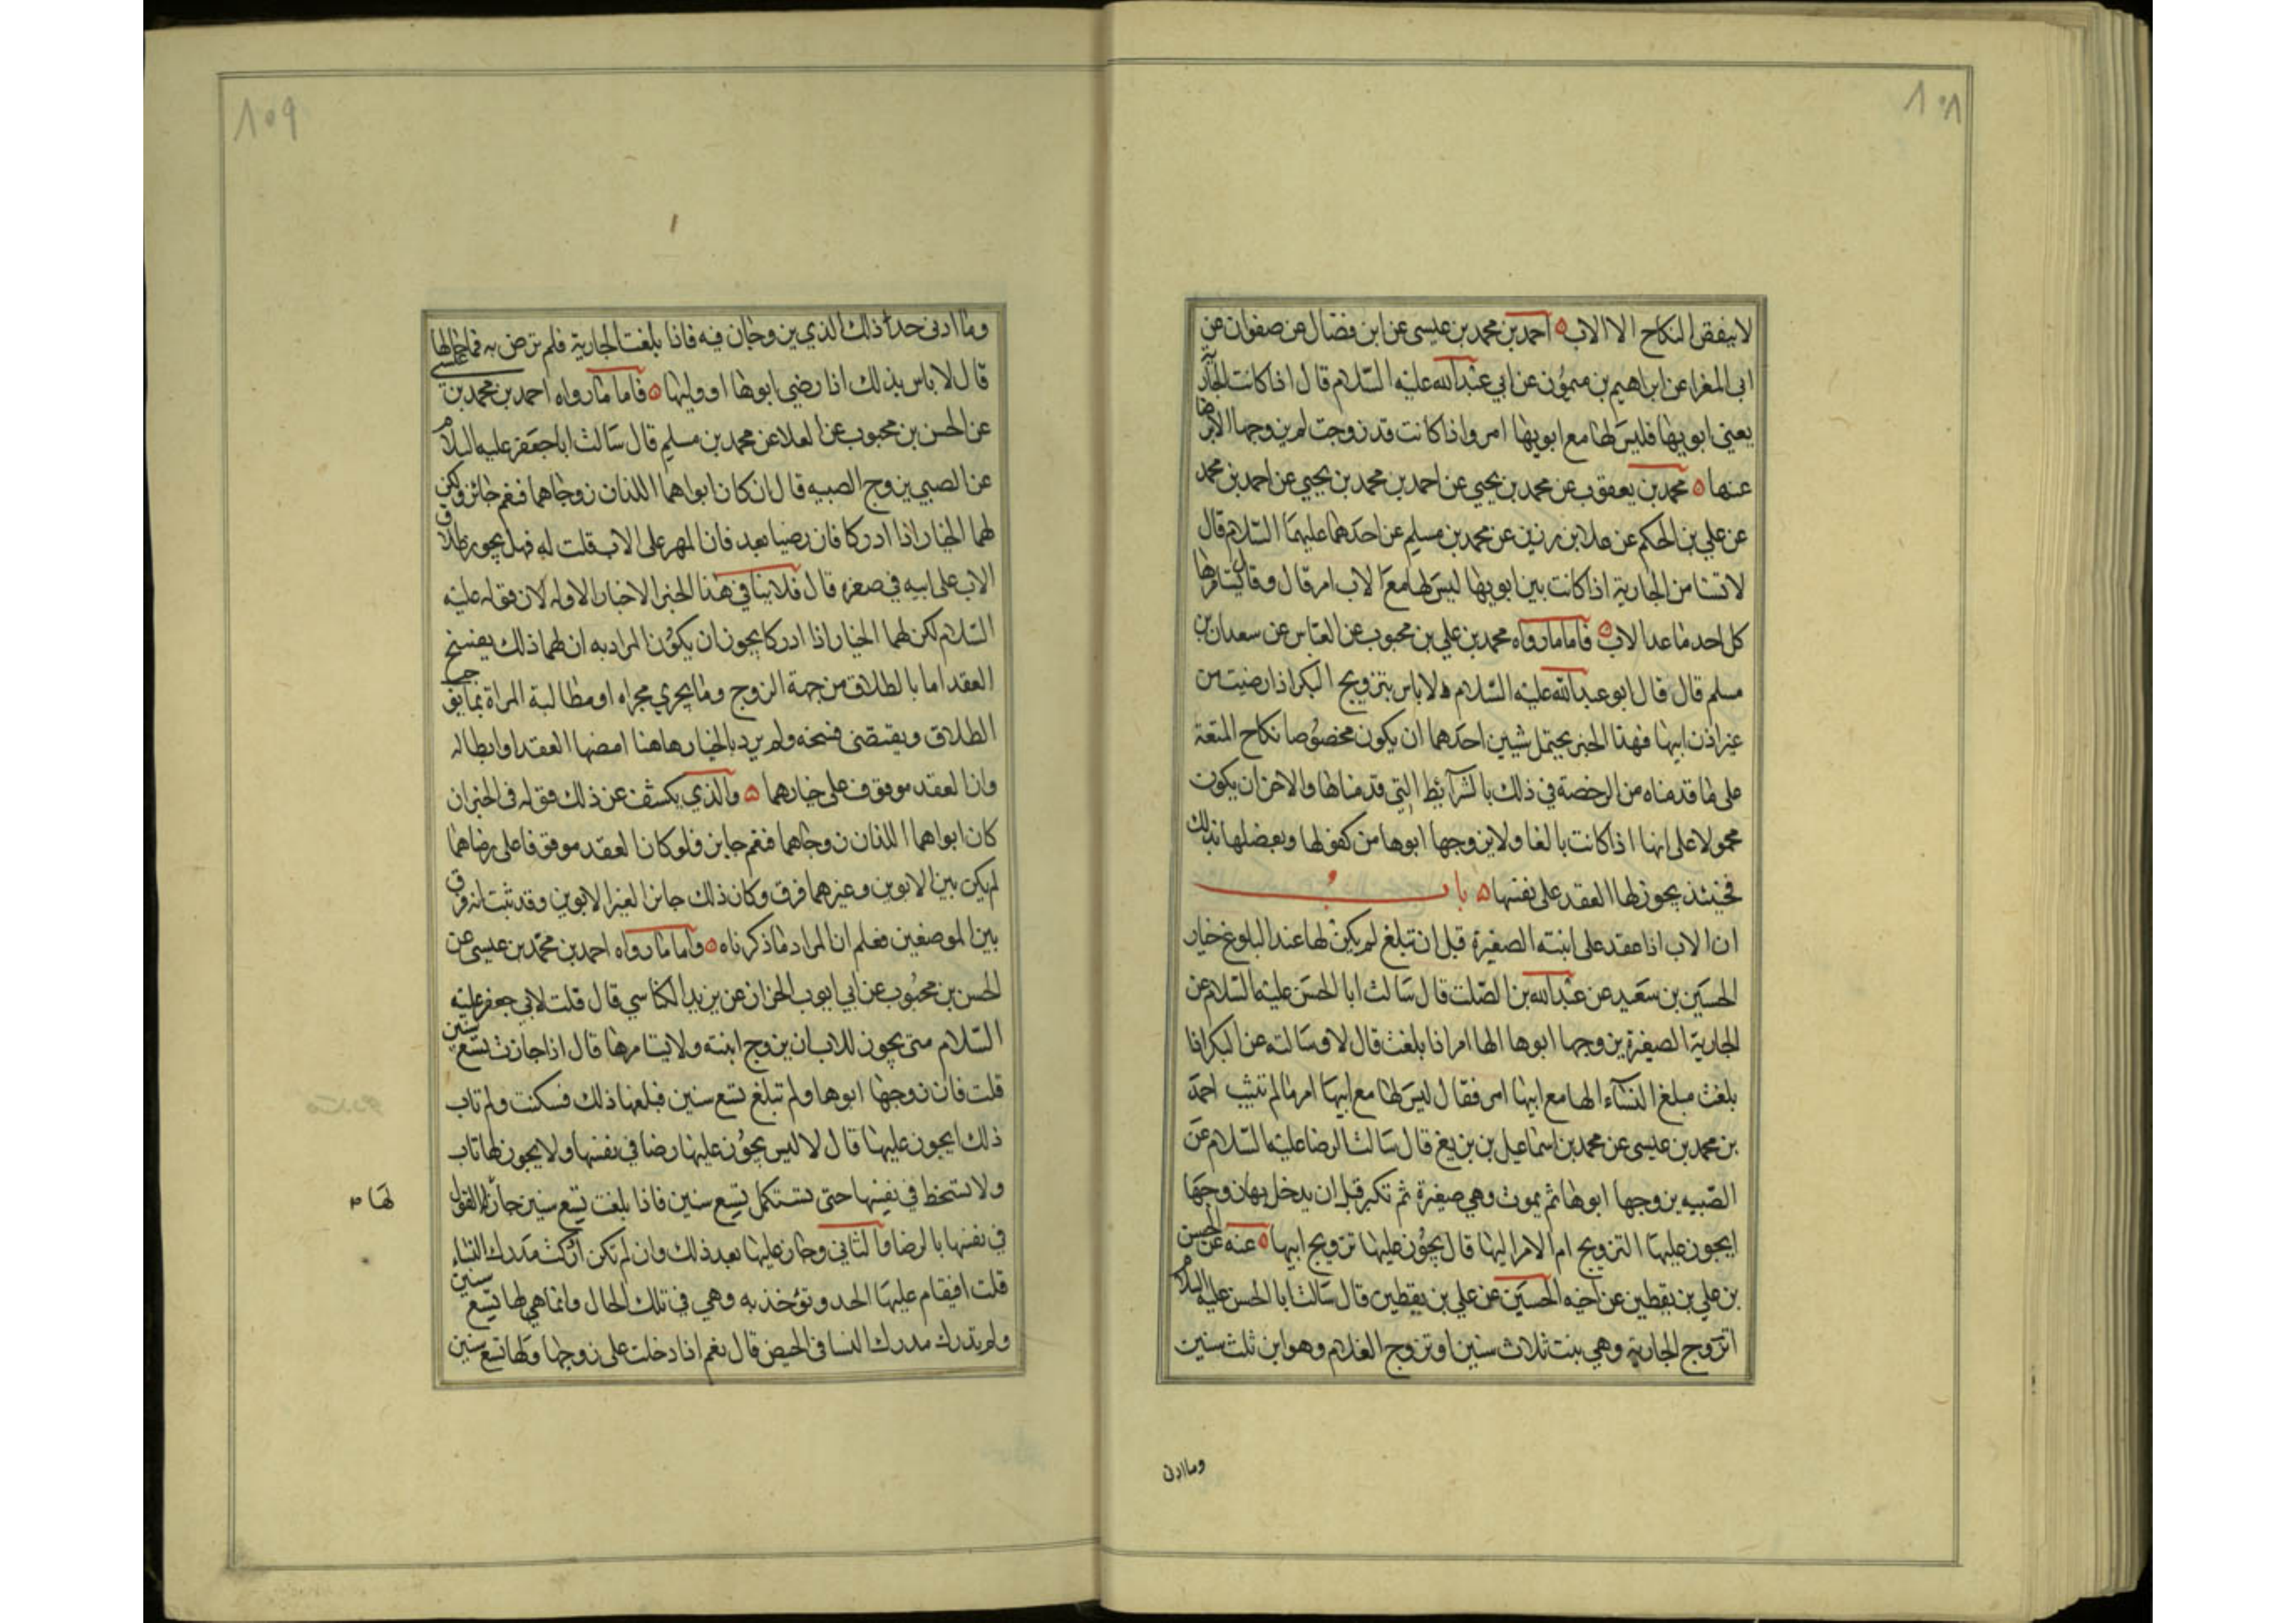 ٨٠٨
لا ينقض النكاح الا الاب احمد بن محمد بن عيسى عن ابن فضال عن صفوان عن
ابى المغرا عن ابراهيم بن ميمون عن ابي عبد الله عليه السلام قال اذا كانت الجارية
يعني ابويها فليس لها مع ابويها امر واذا كانت قد تزوجت لم يزوجها الا برضا
عنها محمد بن يعقوب عن محمد بن يحيى عن احمد بن محمد بن يحيى عن احمد بن محمد
عن علي بن الحكم عن علا بن رزين عن محمد بن مسلم عن احدهما عليهما السلام قال
لا تستامر الجارية اذا كانت بين ابويها ليس لها مع الاب امر قال وقال يستامرها
كل احد ما عدا الاب فاما ما رواه محمد بن علي بن محبوب عن العباس عن سعدان بن
مسلم قال قال ابو عبد الله عليه السلام لا باس بتزويج البكر اذا رضيت من
غير اذن ابيها فهذا الخبر يحتمل شيئين احدهما ان يكون مخصوصا نكاح المتعة
على ما قدمناه من الرخصة في ذلك بالشرائط التي قدمناها والاخر ان يكون
محمولا على انها اذا كانت بالغا ولا يزوجها ابوها من كفو لها ويعضلها بذلك
فحينئذ يجوز لها العقد على نفسها باب
ان الاب اذا عقد على ابنته الصغيرة قبل ان تبلغ لم يكن لها عند البلوغ خيار
الحسين بن سعيد عن عبد الله بن الصلت قال سالت ابا الحسن عليه السلام عن
الجارية الصغيرة يزوجها ابوها الها امر اذا بلغت قال لا وسالته عن البكر اذا
بلغت مبلغ النساء الها مع ابيها امر فقال ليس لها مع ابيها امر ما لم تثيب احمد
بن محمد بن عيسى عن محمد بن اسماعيل بن بزيغ قال سالت الرضا عليه السلام عن
الصبيه يزوجها ابوها ثم يموت وهي صغيرة ثم تكبر قبل ان يدخل بها زوجها
ايجوز عليها التزويج ام الامر اليها قال يجوز عليها تزويج ابيها عنه عن الحسن
بن علي بن يقطين عن اخيه الحسين عن علي بن يقطين قال سالت ابا الحسن عليه السلام
اتزوج الجارية وهي بنت ثلاث سنين او تزوج الغلام وهو ابن ثلث سنين
وما ادنى
٨٠٩
وما ادنى حد ذلك الذي يزوجان فيه فاذا بلغت الجارية فلم ترض به فما حالها
قال لا باس بذلك اذا رضي ابوها او وليها فاما ما رواه احمد بن محمد بن عيسى
عن الحسن بن محبوب عن العلا عن محمد بن مسلم قال سالت ابا جعفر عليه السلام
عن الصبي يزوج الصبيه قال ان كان ابواهما اللذان زوجاهما فنعم جائز ولكن
لهما الخيار اذا ادركا فان رضيا بعد فان المهر على الاب قلت له فهل يجوز طلاق
الاب على ابنه في صغره قال فلا ينافي هذا الخبر الاخبار الاوله لان قوله عليه
السلام لكن لهما الخيار اذا ادركا يجوز ان يكون المراد به ان لهما ذلك بفسخ
العقد اما بالطلاق من جهة الزوج وما يجري مجراه او مطالبة المراة بما يوجب
الطلاق ويقتضى فسخه ولم يرد بالخيار هاهنا امضها العقد او ابطاله
وان العقد موقوف على خيارهما والذي يكشف عن ذلك قوله في الخبر ان
كان ابواهما اللذان زوجاهما فنعم جايز فلو كان العقد موقوفا على رضاهما
لم يكن بين الابوين وغيرهما فرق وكان ذلك جائزا لغير الابوين وقد ثبت انه فرق
بين الموضعين فعلم ان المراد ما ذكرناه واما ما رواه احمد بن محمد بن عيسى عن
الحسن بن محبوب عن ابي ايوب الخزاز عن يزيد الكناسي قال قلت لابي جعفر عليه
السلام متى يجوز للاب ان يزوج ابنته ولا يستامرها قال اذا جازت تسع سنين
قلت فان زوجها ابوها ولم تبلغ تسع سنين فبلغها ذلك فسكنت ولم تاب
ذلك ايجوز عليها قال لا ليس يجوز عليها رضا في نفسها ولا يجوز لها تاب
ولا تسخط في نفسها حتى تستكمل تسع سنين فاذا بلغت تسع سنين جاز لها القول
لها م
في نفسها بالرضا والثاني وجاز عليها بعد ذلك وان لم تكن ادركت مدرك النساء
قلت افيقام عليها الحد وتؤخذ به وهي في تلك الحال وانما هي لها تسع سنين
ولم تدرك مدرك النسا في الحيض قال نعم اذا دخلت على زوجها ولها تسع سنين